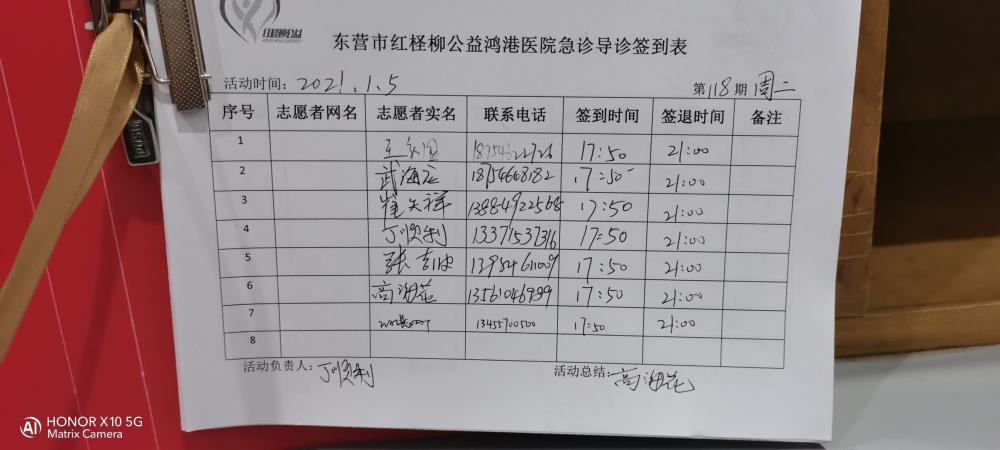 红柽柳公益
东营市红柽柳公益鸿港医院急诊导诊签到表
活动时间：2021.1.5 第118期 周二
序号 志愿者网名 志愿者实名 联系电话 签到时间 签退时间 备注
1 17:50 21:00
2 武海 18754668182 17:50 21:00
3 崔天祥 13884922568 17:50 21:00
4 丁顺利 13371537316 17:50 21:00
5 张吉 17:50 21:00
6 高海花 13561046999 17:50 21:00
7 13455700500 17:50 21:00
8
活动负责人：丁顺利 活动总结：高海花
HONOR X10 5G
Matrix Camera